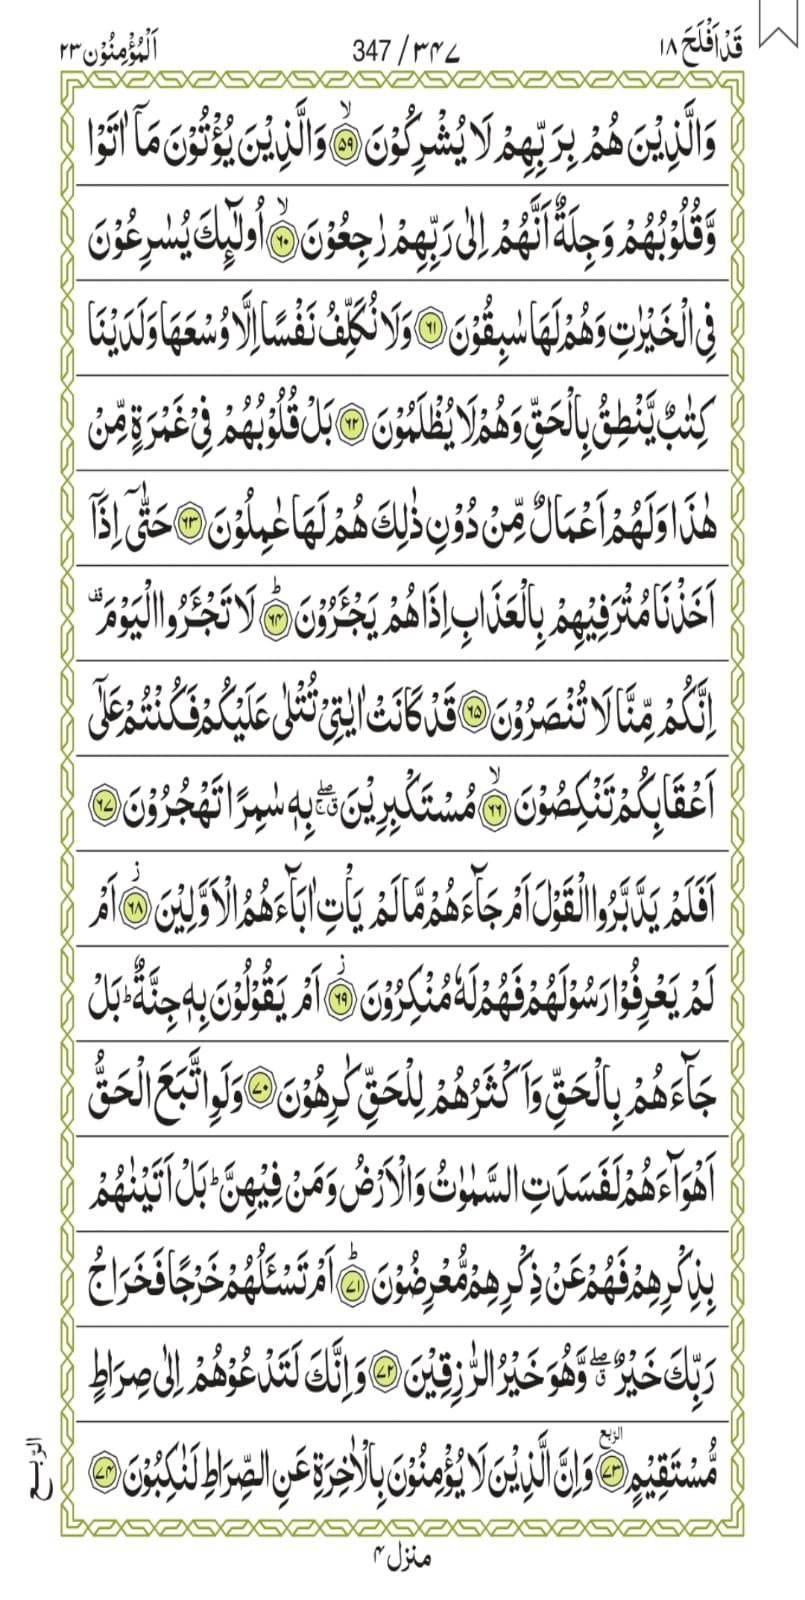 قَدْ اَفْلَحَ ١٨
347 / ٣٤٧
اَلْمُؤْمِنُوْن ٢٣
وَالَّذِيْنَ هُمْ بِرَبِّهِمْ لَا يُشْرِكُوْنَ ۙ‏﴿۵۹﴾ وَالَّذِيْنَ يُؤْتُوْنَ مَاۤ اٰتَوْا
وَّقُلُوْبُهُمْ وَجِلَةٌ اَنَّهُمْ اِلٰى رَبِّهِمْ رٰجِعُوْنَ ۙ‏﴿۶۰﴾ اُولٰٓئِكَ يُسٰرِعُوْنَ
فِى الْخَيْرٰتِ وَهُمْ لَهَا سٰبِقُوْنَ ﴿۶۱﴾ وَلَا نُكَلِّفُ نَفْسًا اِلَّا وُسْعَهَا وَلَدَيْنَا
كِتٰبٌ يَّنْطِقُ بِالْحَقِّ وَهُمْ لَا يُظْلَمُوْنَ ﴿۶۲﴾ بَلْ قُلُوْبُهُمْ فِىْ غَمْرَةٍ مِّنْ
هٰذَا وَلَهُمْ اَعْمَالٌ مِّنْ دُوْنِ ذٰلِكَ هُمْ لَهَا عٰمِلُوْنَ ﴿۶۳﴾ حَتّٰٓى اِذَاۤ
اَخَذْنَا مُتْرَفِيْهِمْ بِالْعَذَابِ اِذَا هُمْ يَجْئَرُوْنَ ؕ‏﴿۶۴﴾ لَا تَجْئَرُوا الْيَوْمَ قف
اِنَّكُمْ مِّنَّا لَا تُنْصَرُوْنَ ﴿۶۵﴾ قَدْ كَانَتْ اٰيٰتِىْ تُتْلٰى عَلَيْكُمْ فَكُنْتُمْ عَلٰٓى
اَعْقَابِكُمْ تَنْكِصُوْنَ ۙ‏﴿۶۶﴾ مُسْتَكْبِرِيْنَ ۖ ۚ ق بِهٖ سٰمِرًا تَهْجُرُوْنَ ﴿۶۷﴾
اَفَلَمْ يَدَّبَّرُوا الْقَوْلَ اَمْ جَآءَهُمْ مَّا لَمْ يَاْتِ اٰبَآءَهُمُ الْاَوَّلِيْنَ ز ﴿۶۸﴾ اَمْ
لَمْ يَعْرِفُوْا رَسُوْلَهُمْ فَهُمْ لَهٗ مُنْكِرُوْنَ ز ﴿۶۹﴾ اَمْ يَقُوْلُوْنَ بِهٖ جِنَّةٌ ؕ بَلْ
جَآءَهُمْ بِالْحَقِّ وَاَكْثَرُهُمْ لِلْحَقِّ كٰرِهُوْنَ ﴿۷۰﴾ وَلَوِ اتَّبَعَ الْحَقُّ
اَهْوَآءَهُمْ لَفَسَدَتِ السَّمٰوٰتُ وَالْاَرْضُ وَمَنْ فِيْهِنَّ ؕ بَلْ اَتَيْنٰهُمْ
بِذِكْرِهِمْ فَهُمْ عَنْ ذِكْرِهِمْ مُّعْرِضُوْنَ ؕ‏﴿۷۱﴾ اَمْ تَسْئَلُهُمْ خَرْجًا فَخَرَاجُ
رَبِّكَ خَيْرٌ ۖ ق وَّهُوَ خَيْرُ الرّٰزِقِيْنَ ﴿۷۲﴾ وَاِنَّكَ لَتَدْعُوْهُمْ اِلٰى صِرَاطٍ
مُّسْتَقِيْمٍ الربع ﴿۷۳﴾ وَاِنَّ الَّذِيْنَ لَا يُؤْمِنُوْنَ بِالْاٰخِرَةِ عَنِ الصِّرَاطِ لَنٰكِبُوْنَ ﴿۷۴﴾
الربع
منزل ۴